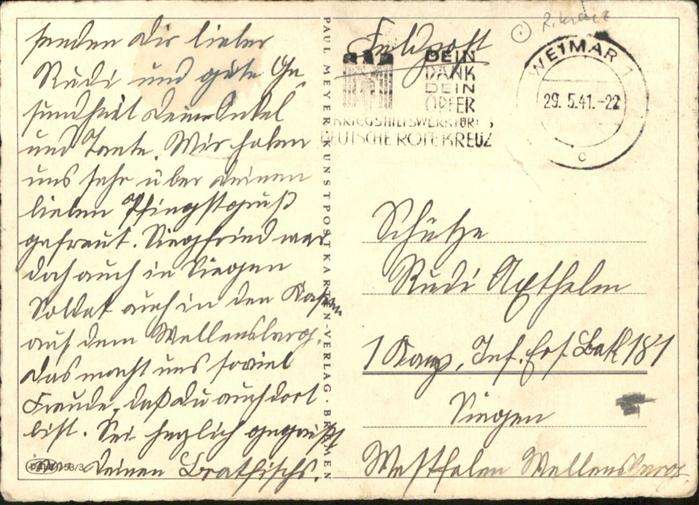 senden dir lieber
Rudi und gute Ge-
sundheit deine Onkel
und Tante. Wir haben
uns sehr über deinen
lieben Pfingstgruß
gefreut. Siegfried war
doch auch in Siegen
Soldat auch in den Kasern
auf dem Wellersberg.
das macht uns soviel
Freude, daß du auch dort
bist. Sei herzlich gegrüßt
deinen
PAUL MEYER KUNSTPOSTKARTEN-VERLAG · BREMEN
Feldpost
DEIN
DANK
DEIN
OPFER
KRIEGSHILFSWERK FÜR DAS
DEUTSCHE ROTE KREUZ
WEIMAR 1
29.5.41.-22
c
Schütze
Rudi Apthelm
1 Komp, Inf. Ers. Batl. 181
Siegen
Westfalen Wellersberg